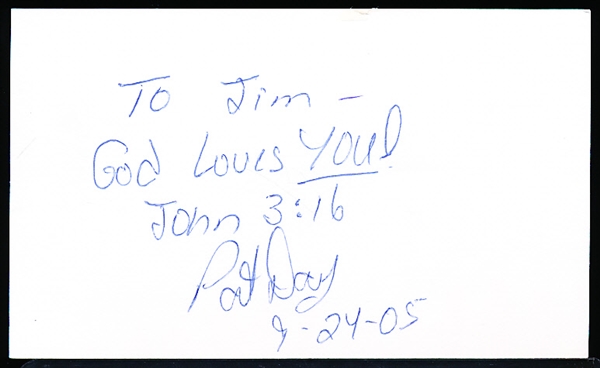 To Jim –
God Loves YOU!
John 3:16
Pat Day
9-24-05